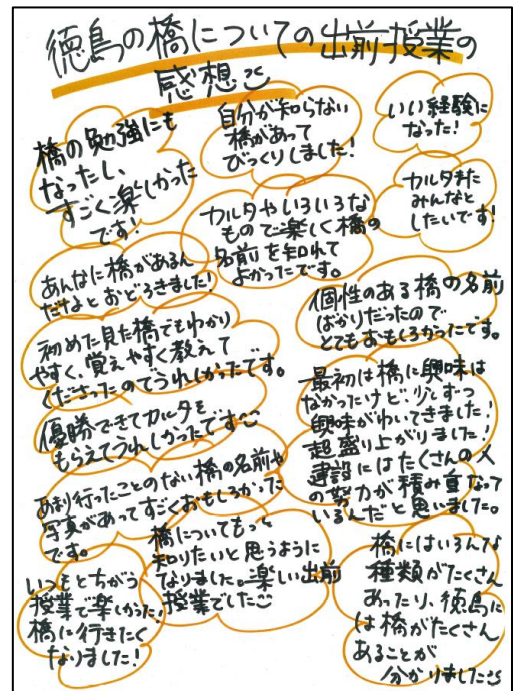 徳島の橋についての出前授業の
感想
橋の勉強にも
なったし、
すごく楽しかった
です!
自分が知らない
橋があって
びっくりしました!
いい経験に
なった!
カルタまた
みんなと
したいです!
カルタやいろいろな
もので楽しく橋の
名前を知れて
よかったです。
あんなに橋があるん
だなとおどろきました!
個性のある橋の名前
ばかりだったので
とてもおもしろかったです。
初めた見た橋でもわかり
やすく、覚えやすく教えて
くださったのでうれしかったです。
最初は橋に興味は
なかったけど、少しずつ
興味がわいてきました!
超盛り上がりました!
建設にはたくさんの人
の努力が積み重なって
いるんだと思いました。
優勝できてカルタを
もらえてうれしかったです
あまり行ったことのない橋の名前や
写真があってすごくおもしろかった
です。
橋についてもっと
知りたいと思うように
なりました。楽しい出前
授業でした
いつもとちがう
授業で楽しかった。
橋に行きたく
なりました!
橋にはいろんな
種類がたくさん
あったり、徳島に
は橋がたくさん
あることが
分かりました